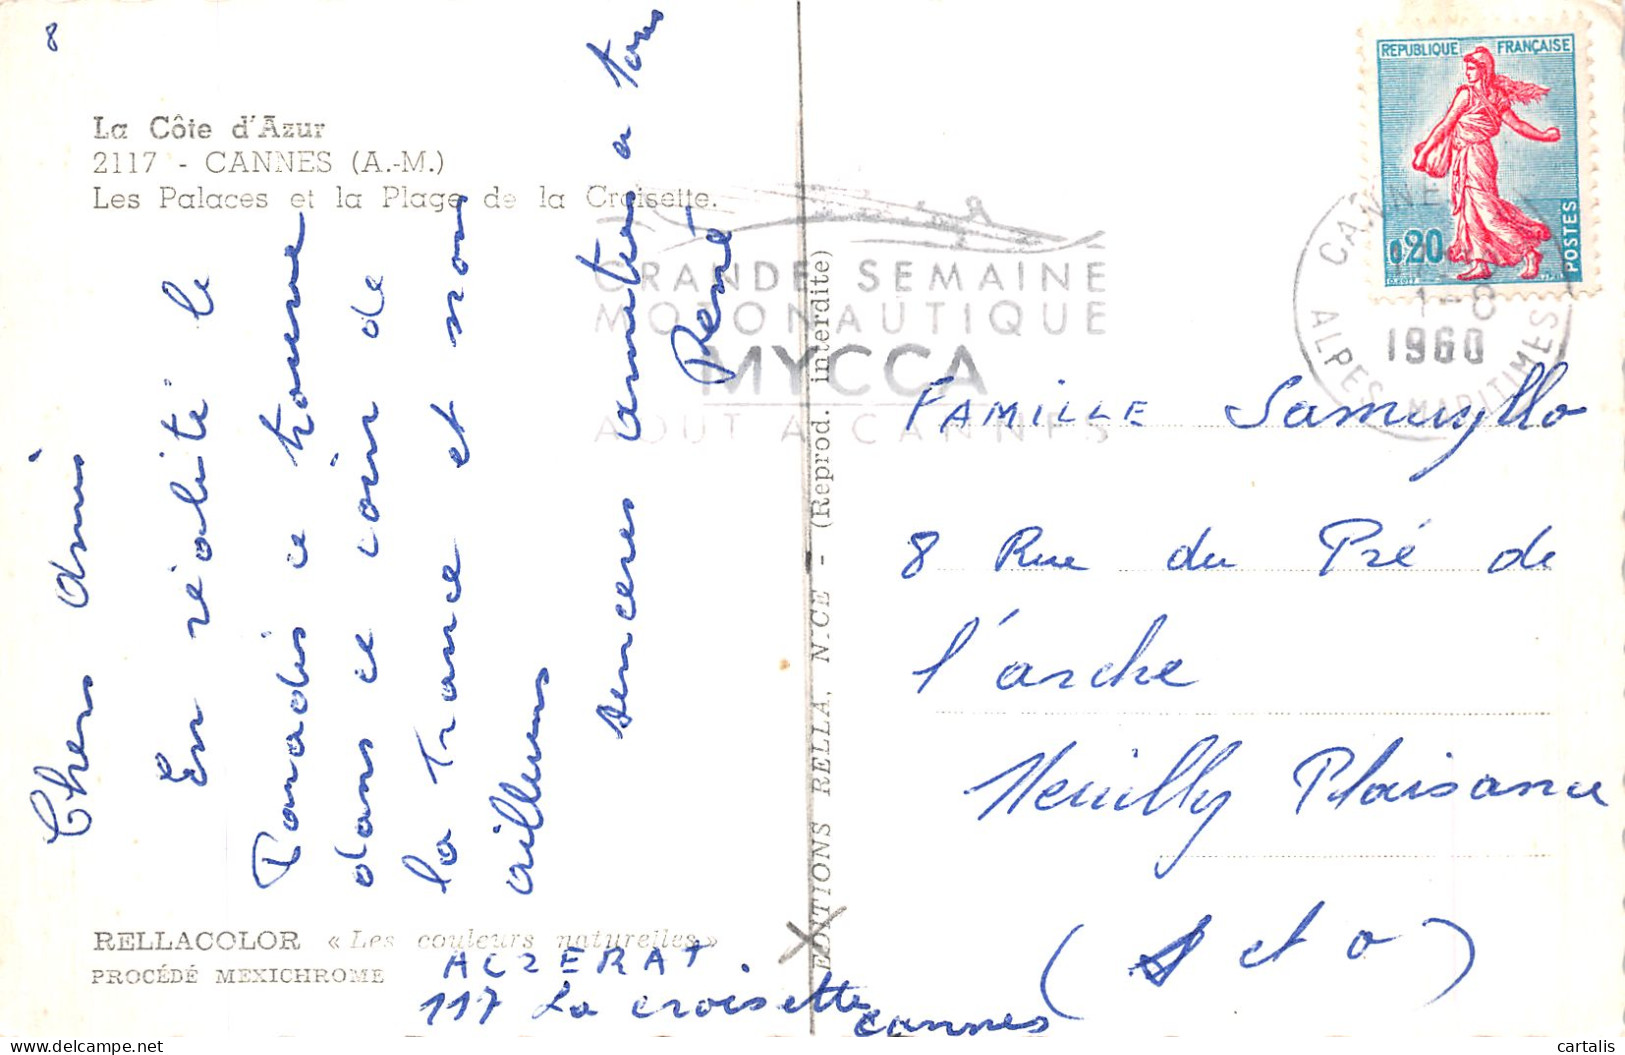 8
La Côte d'Azur
2117 - CANNES (A.-M.)
Les Palaces et la Plage de la Croisette.
Chers amis
En réalité le
Paradis ce trouve
dans ce coin de
la France et non
ailleurs
sincères amitiés a tous
René
RELLACOLOR « Les couleurs naturelles »
PROCÉDÉ MEXICHROME
ALZERAT.
117 La croisette
cannes
EDITIONS RELLA, NICE - (Reprod. interdite)
GRANDE SEMAINE
MOTONAUTIQUE
MYCCA
AOUT A CANNES
REPUBLIQUE FRANÇAISE
0,20
POSTES
CANNES
1-8
1960
ALPES MARITIMES
FAMILLE Samuyllo
8 Rue du Pré de
l'arche
Neuilly Plaisance
(S et O)
cartalis
delcampe.net